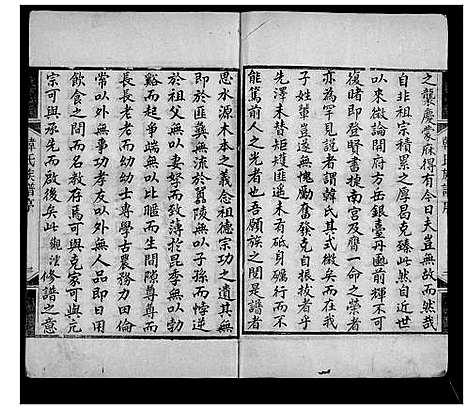 之襲慶蒙庥得有今日夫豈無故而然哉
自非祖宗積累之厚昌克臻此然自近世
以來微論開府方岳銀臺丹圖前輝不可
復睹即登賢書捷南宮及膺一命之榮者
亦為罕見說者謂韓氏其式微矣而在我
子姓輩豈遂無愧勵奮發克自振拔者乎
先澤未替矩矱匪遥未有砥身礪行而不
能篤前人之光者也吾願族之閱是譜者
思水源木本之義念祖德宗功之遺其無
即於匪彝無流於驕陵無以子孫而悖逆
於祖父無以妻孥而致薄於昆季無以勃
谿而乘大義無以比暱而生間隙尊尊而
長長老老而幼幼士專學古農務力田倫
常以外無事功孝友以外無人品即日用
飲食之間而名教存焉可與克家可與亢
宗可與承先而啟後矣此觀瀅修譜之意
韓氏族譜序